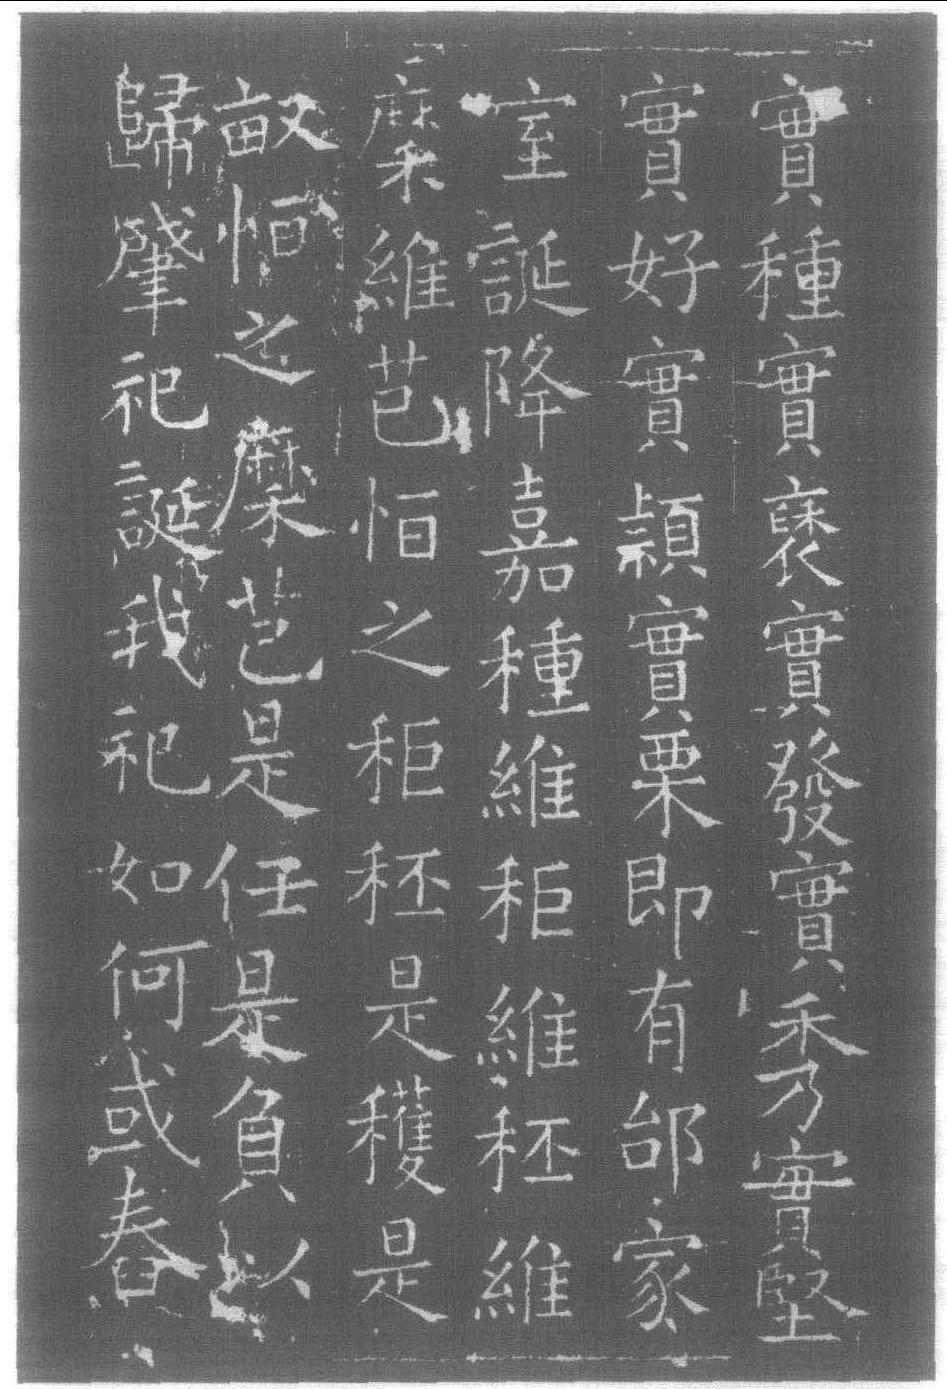 實種實實褎實發實秀實堅
實好實實穎實栗即有邰家
室誕降嘉種維秬維秠維
穈維芑恒之秬秠是穫是
畝恒之穈芑是任是負以
歸肇祀誕我祀如何或舂